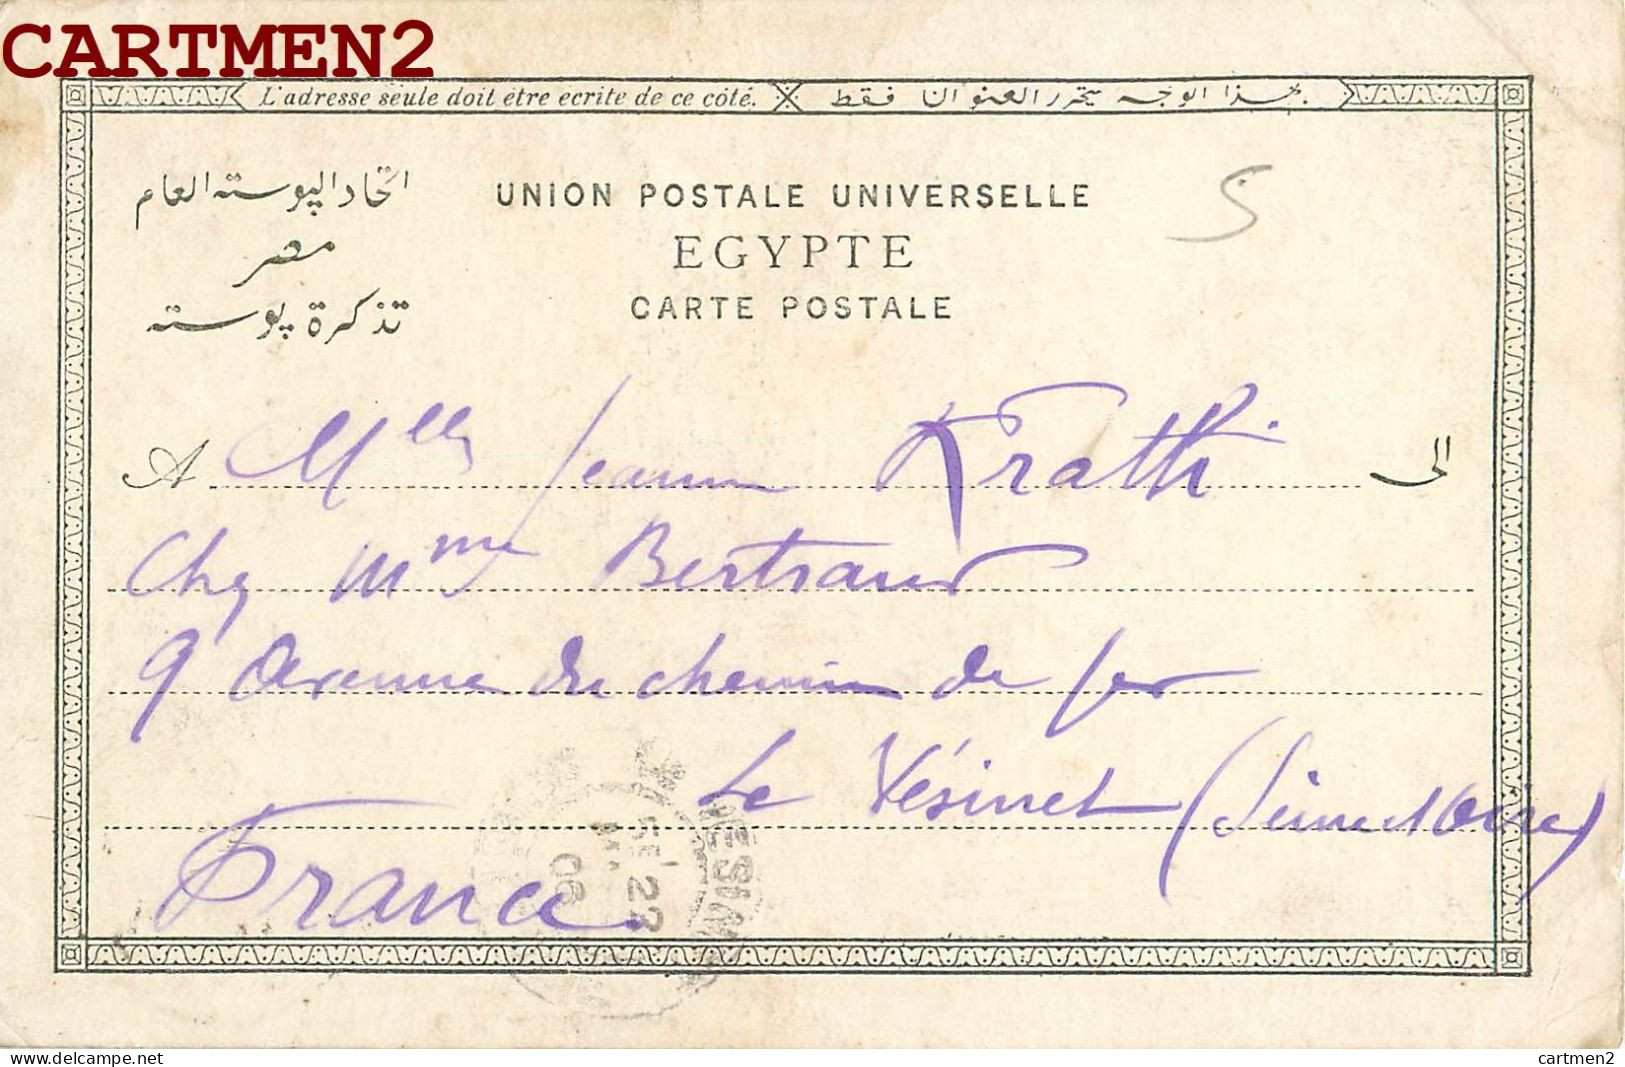 CARTMEN2
L'adresse seule doit être écrite de ce côté. هذا الوجه يتحرر العنوان فقط
اتحاد البوسته العام
مصر
تذكرة بوسته
UNION POSTALE UNIVERSELLE
EGYPTE
CARTE POSTALE
5
A Mlle Jeanne Krath الى
Chez Mme Bertrand
9 Avenue du chemin de fer
Le Vésinet (Seine et Oise)
France
cartmen2